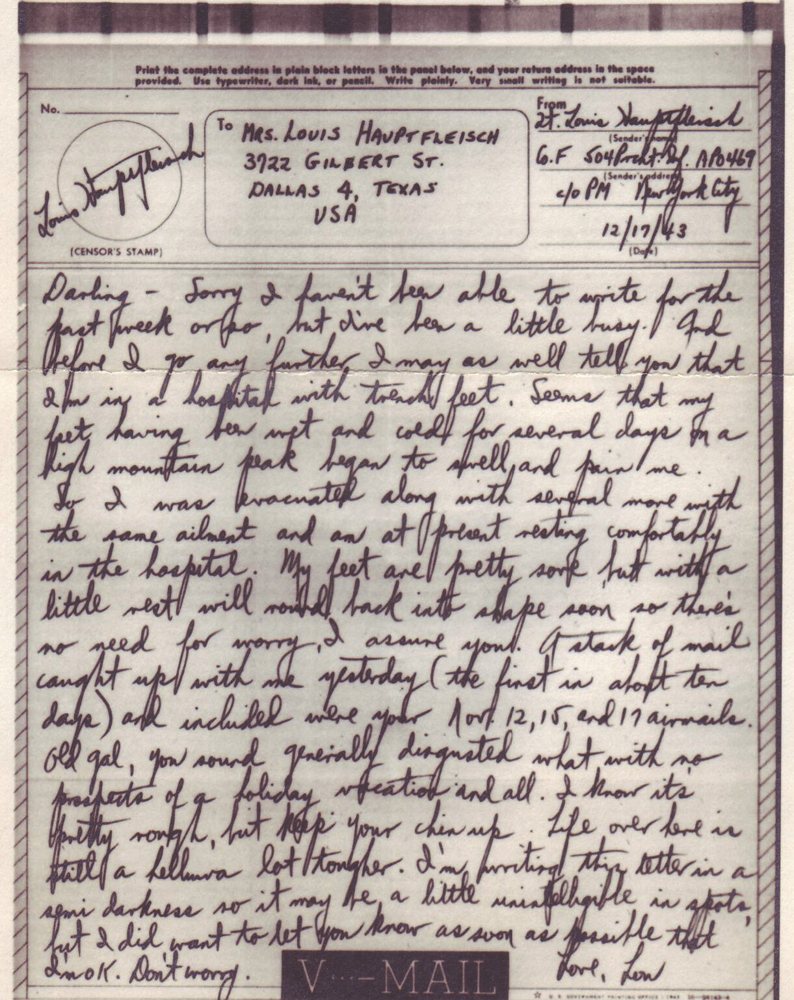 Print the complete address in plain block letters in the panel below, and your return address in the space
provided. Use typewriter, dark ink, or pencil. Write plainly. Very small writing is not suitable.
No.
Louis Hauptfleisch
(CENSOR'S STAMP)
To MRS. LOUIS HAUPTFLEISCH
3722 GILBERT ST.
DALLAS 4, TEXAS
USA
From
Lt. Louis Hauptfleisch
(Sender's name)
Co. F 504 Prcht. Inf. APO 469
(Sender's address)
c/o PM New York City
12/17/43
(Date)
Darling - Sorry I haven't been able to write for the
past week or so, but I've been a little busy. And
before I go any further I may as well tell you that
I'm in a hospital with trench feet. Seems that my
feet having been wet and cold for several days on a
high mountain peak began to swell, and pain me.
So I was evacuated along with several more with
the same ailment and am at present resting comfortably
in the hospital. My feet are pretty sore but with a
little rest will round back into shape soon so there's
no need for worry, I assure you. A stack of mail
caught up with me yesterday (the first in about ten
days) and included were your Nov. 12, 15, and 17 airmails.
Old gal, you sound generally disgusted what with no
prospects of a holiday vacation and all. I know it's
pretty rough, but keep your chin up. Life over here is
still a helluva lot tougher. I'm writing this letter in a
semi darkness so it may be a little unintelligible in spots,
but I did want to let you know as soon as possible that
I'm OK. Don't worry. Love, Lou
V···—MAIL